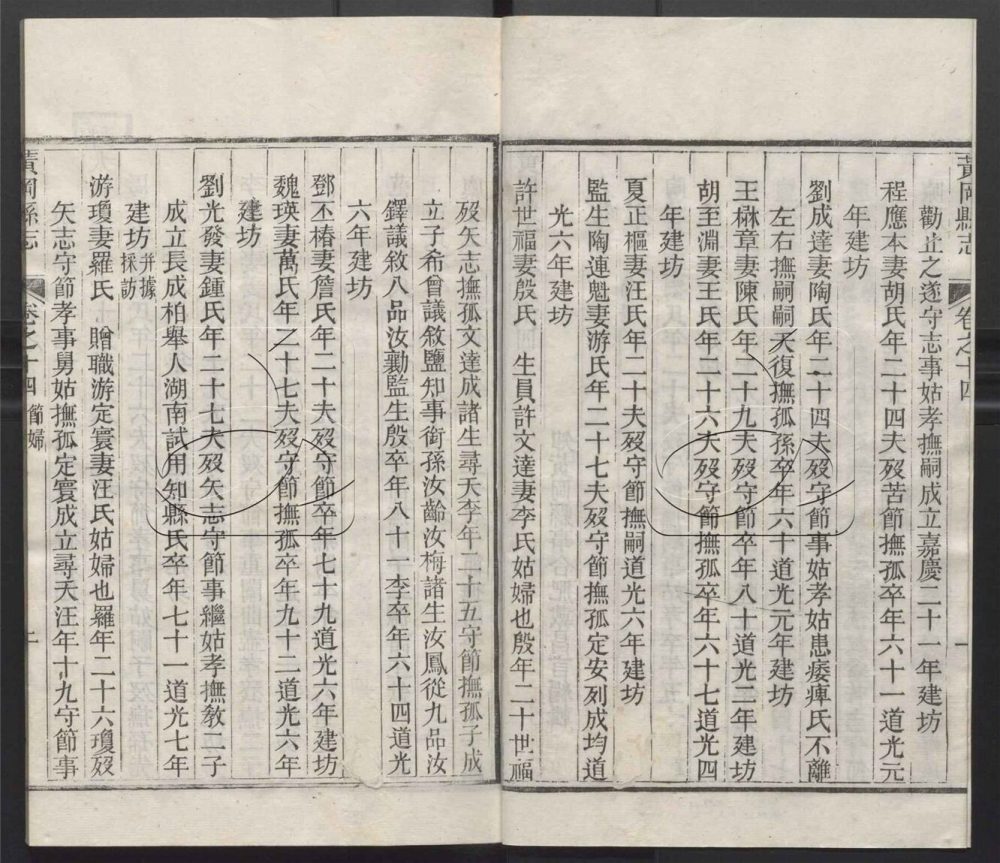 黃岡縣志
卷之十四
一
勸止之遂守志事姑孝撫嗣成立嘉慶二十一年建坊
程應本妻胡氏年二十四夫歿苦節撫孤卒年六十一道光元
年建坊
劉成達妻陶氏年二十四夫歿守節事姑孝姑患痿痺氏不離
左右撫嗣嗣夭復撫孤孫卒年六十道光元年建坊
王楙章妻陳氏年二十九夫歿守節卒年八十道光三年建坊
胡至淵妻王氏年二十六夫歿守節撫孤卒年六十七道光四
年建坊
夏正樞妻汪氏年二十夫歿守節撫嗣道光六年建坊
監生陶連魁妻游氏年二十七夫歿守節撫孤定安列成均道
光六年建坊
許世福妻殷氏 生員許文達妻李氏姑婦也殷年二十世福
歿矢志撫孤文達成諸生尋夭李年二十五守節撫孤子成
立子希曾議敘鹽知事銜孫汝齡汝梅諸生汝鳳從九品汝
鐸議敘八品汝勷監生殷卒年八十一李卒年六十四道光
六年建坊
鄧丕椿妻詹氏年二十夫歿守節卒年七十九道光六年建坊
魏瑛妻萬氏年二十七夫歿守節撫孤卒年九十二道光六年
建坊
劉光發妻鍾氏年二十七夫歿矢志守節事繼姑孝撫教二子
成立長成柏舉人湖南試用知縣氏卒年七十一道光七年
建坊并據採訪
游瓊妻羅氏 贈職游定寰妻汪氏姑婦也羅年二十六瓊歿
矢志守節孝事舅姑撫孤定寰成立尋夭汪年十九守節事
黃岡縣志
卷之十四 節婦